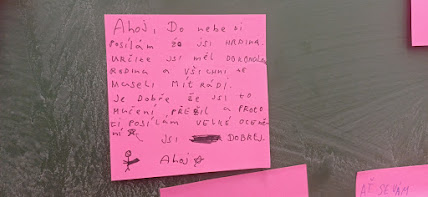 AHOJ, DO NEBE TI
POSÍLÁM ŽE JSI HRDINA.
URČITĚ JSI MĚL DOKONALO
RODINA A VŠICHNI TĚ
MUSELI MÍT RÁDI.
JE DOBŘE ŽE JSI TO
MUČENÍ PŘEŽIL A PROTO
TI POSÍLÁM VELKÉ OCENĚ-
NÍ
JSI DOBREJ.
AHOJ
AŤ SE VÁM